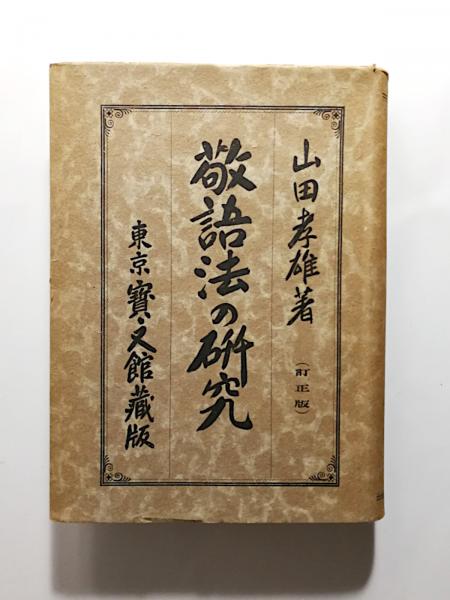 山田孝雄著
（訂正版）
敬語法の研究
東京寶文館藏版